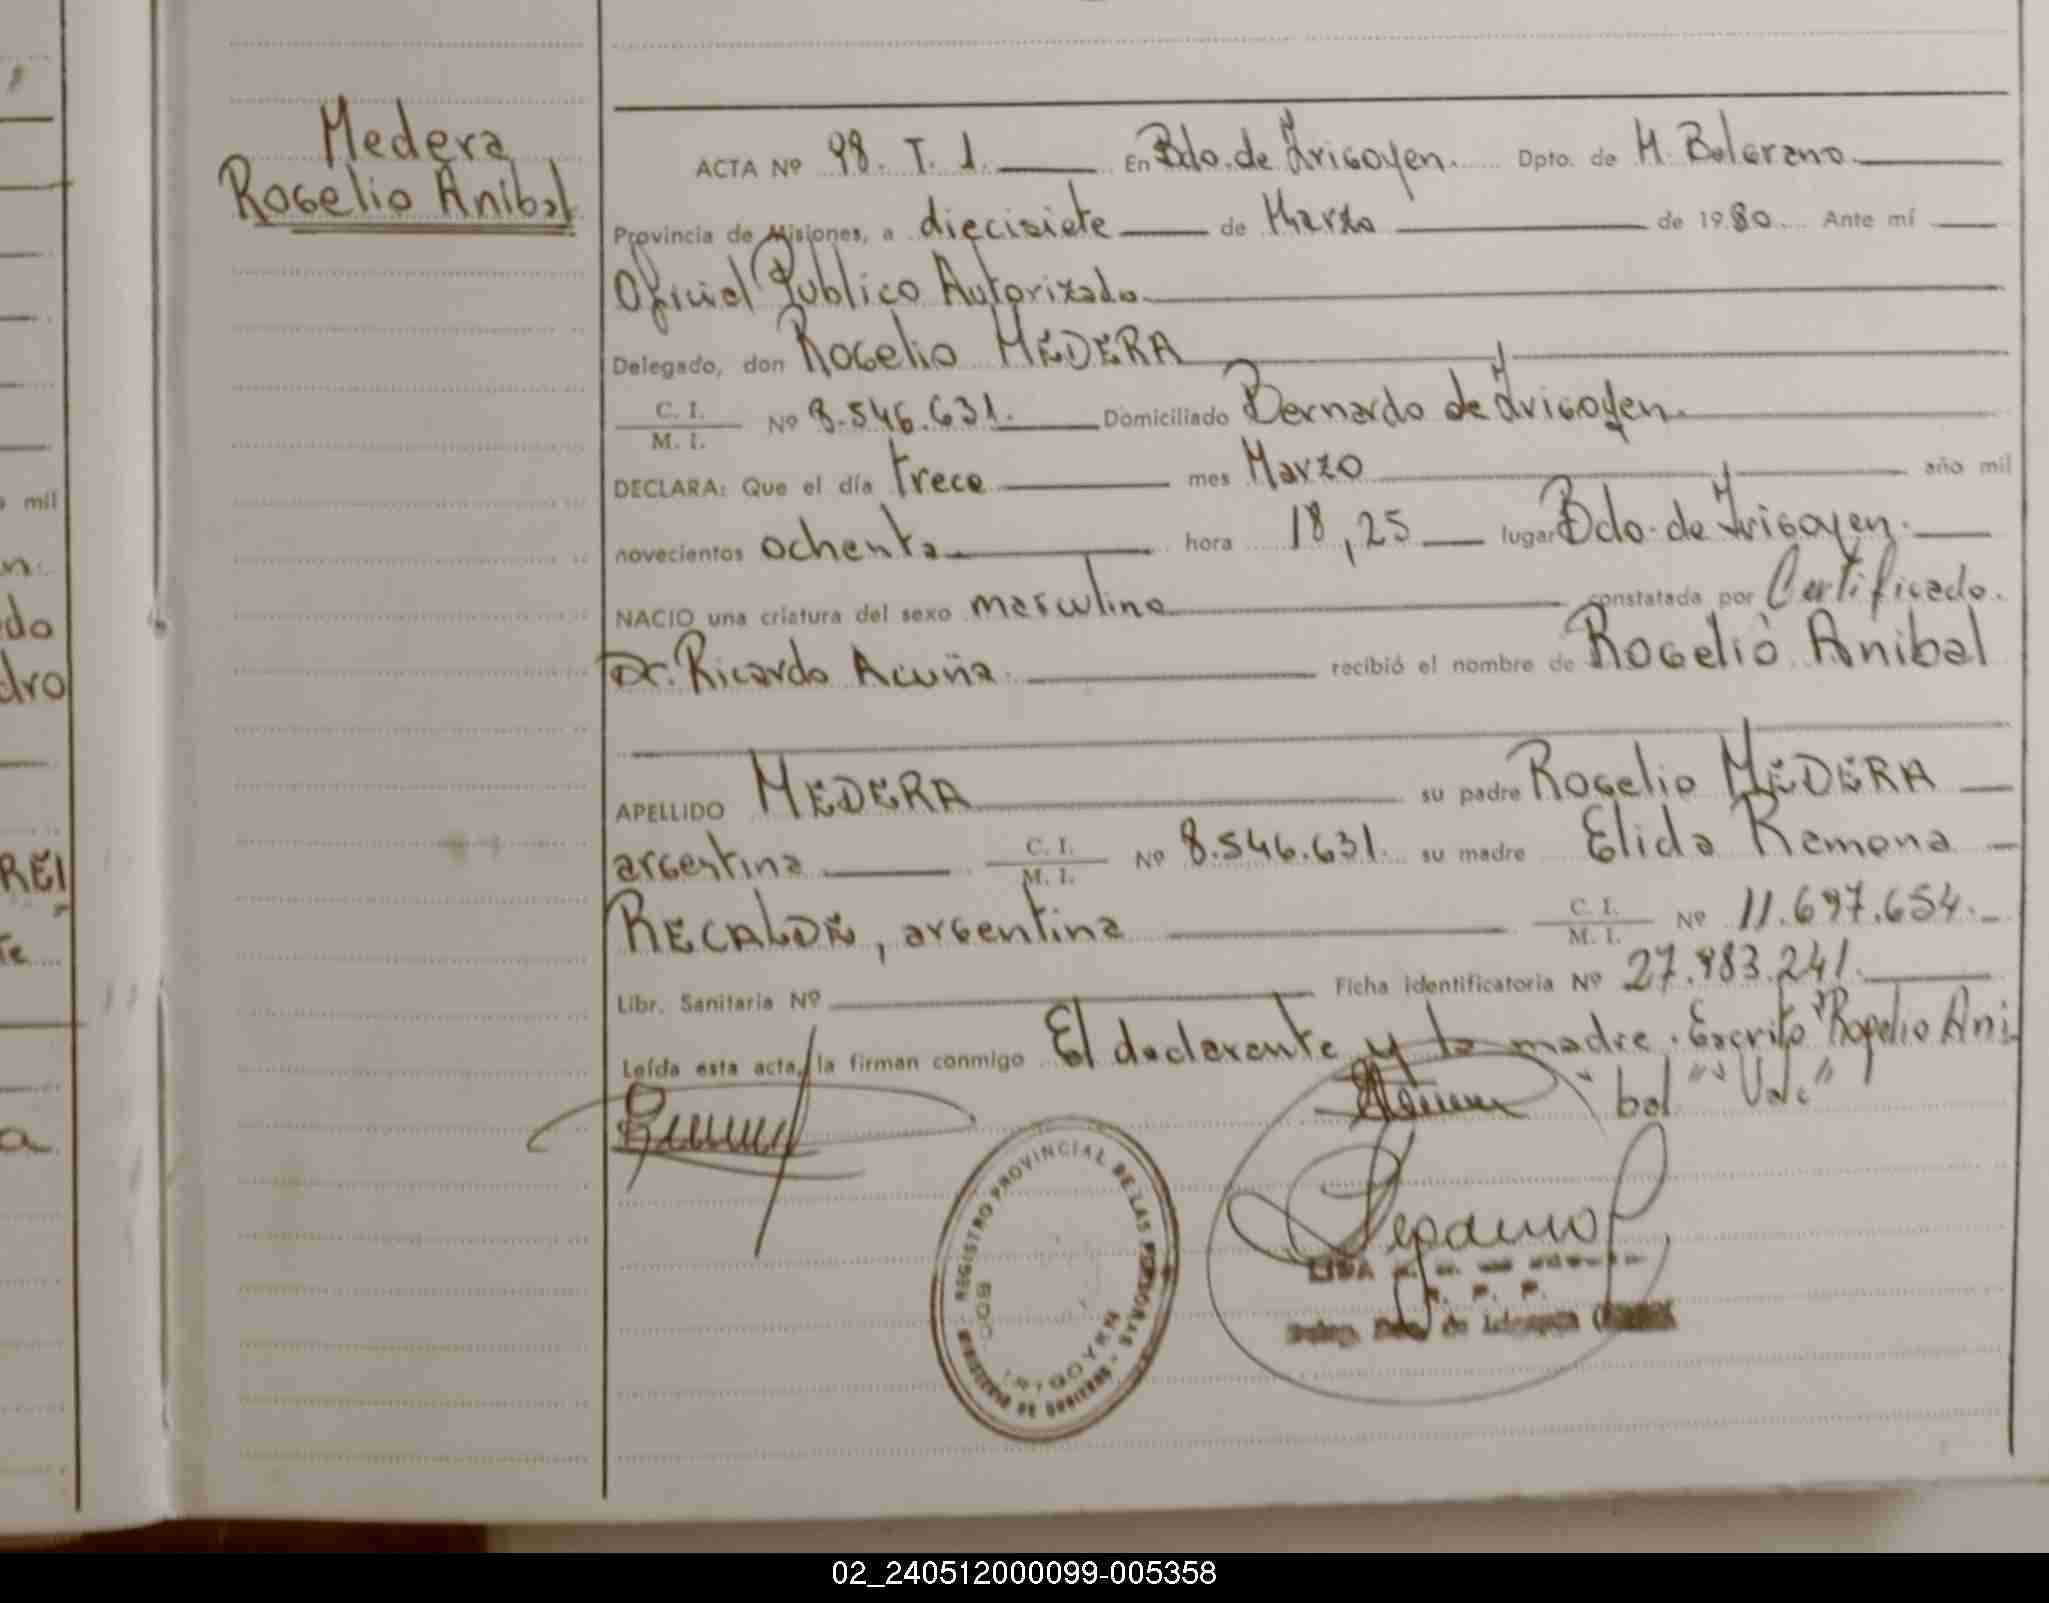 Medera
Rogelio Anibal
ACTA Nº 98. T. 1. En Bdo. de Irigoyen. Dpto. de M. Belgrano
Provincia de Misiones, a diecisiete de Marzo de 1980 Ante mí
Oficial Público Autorizado
Delegado, don Rogelio MEDERA
C. I.
M. I. Nº 8.546.631. Domiciliado Bernardo de Irigoyen.
DECLARA: Que el día trece mes Marzo año mil
novecientos ochenta hora 18,25 lugar Bdo. de Irigoyen.
NACIO una criatura del sexo masculino constatada por Certificado.
Dr. Ricardo Acuña recibió el nombre de Rogelio Anibal
APELLIDO MEDERA su padre Rogelio MEDERA
argentina C. I. M. I. Nº 8.546.631. su madre Elida Ramona
RECALDE, argentina C. I. M. I. Nº 11.697.654.
Libr. Sanitaria Nº Ficha identificatoria Nº 27.983.241.
Leída esta acta, la firman conmigo El declarante y la madre. Escrito "Rogelio Ani
bal" "Vale"
REGISTRO PROVINCIAL DE LAS PERSONAS
MINISTERIO DE GOBIERNO
BDO. IRIGOYEN
mil
do
dro
REI
te
a
02_240512000099-005358